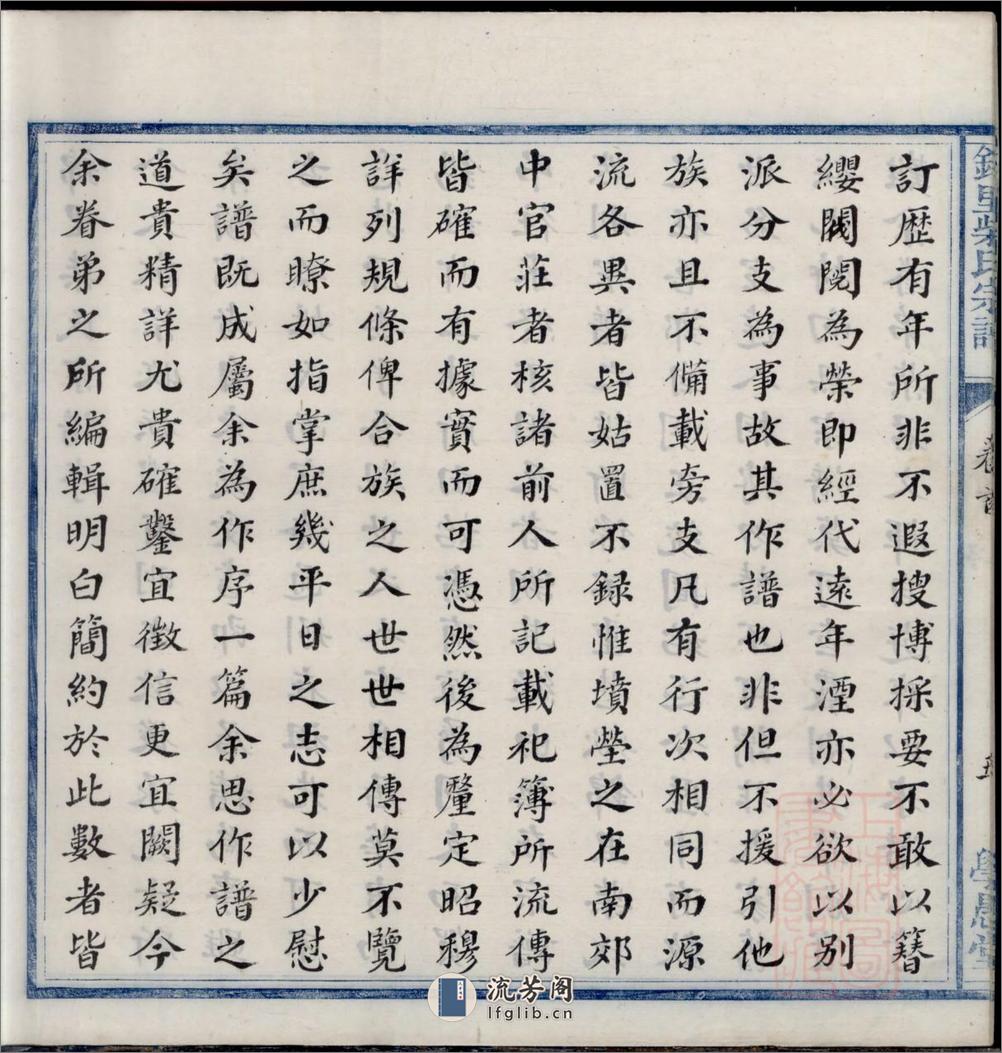 訂歷有年所非不遐搜博採要不敢以簪
纓閥閱為榮即經代遠年湮亦必欲以別
派分支為事故其作譜也非但不援引他
族亦且不備載旁支凡有行次相同而源
流各異者皆姑置不録惟墳塋之在南郊
中官莊者核諸前人所記載祀簿所流傳
皆確而有據實而可憑然後為釐定昭穆
詳列規條俾合族之人世世相傳莫不覽
之而瞭如指掌庶幾平日之志可以少慰
矣譜既成屬余為作序一篇余思作譜之
道貴精詳尤貴確鑿宜徵信更宜闕疑今
余眷弟之所編輯明白簡約於此數者皆
氏宗譜
卷首
學思堂
流芳阁
lfglib.cn